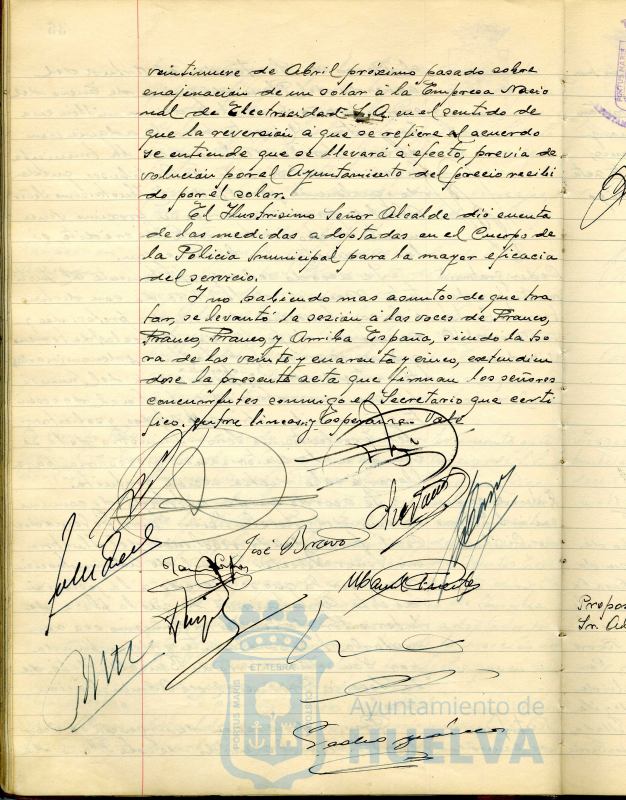 veintinueve de Abril próximo pasado sobre
enajenación de un solar á la Empresa Nacio
nal de Electricidad S.A. en el sentido de
que la reversión á que se refiere el acuerdo
se entiende que se llevará á efecto, previa de
volución por el Ayuntamiento del precio recibi
do por él solar.
El Ilustrísimo Señor Alcalde dió cuenta
de las medidas adoptadas en el Cuerpo de
la Policía municipal para la mayor eficacia
del servicio.
Y no habiendo mas asuntos de que tra
tar, se levantó la sesión á las voces de Franco,
Franco, Franco, y Arriba España, siendo la ho
ra de las veinte y cuarenta y cinco, extendién
dose la presente acta que firman los señores
concurrentes conmigo el Secretario que certi
fico. entre lineas: y Esperanza. Vale.
José Bravo
Manuel Fuentes
Propos
Sr. Al
PORTUS MARIS
ET TERRA
CUSTODIA
Ayuntamiento de
HUELVA